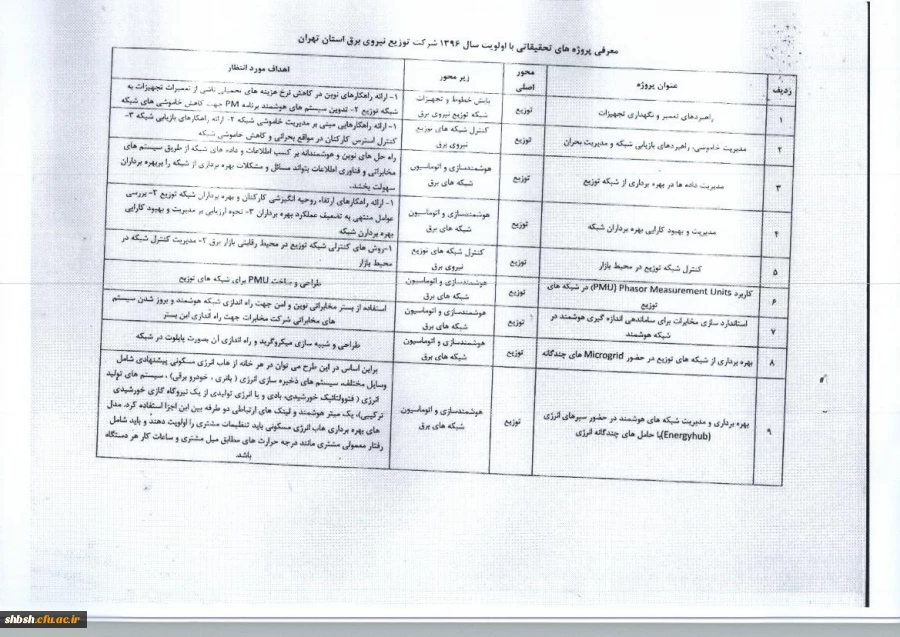 معرفی پروژه های تحقیقاتی با اولویت سال ۱۳۹۶ شرکت توزیع نیروی برق استان تهران
ردیف
عنوان پروژه
محور
اصلی
زیر محور
اهداف مورد انتظار
۱
راهبردهای تعمیر و نگهداری تجهیزات
توزیع
پایش خطوط و تجهیزات
شبکه توزیع نیروی برق
۱- ارائه راهکارهای نوین در کاهش نرخ هزینه های تحمیلی ناشی از تعمیرات تجهیزات به
شبکه توزیع ۲- تدوین سیستم های هوشمند برنامه PM جهت کاهش خاموشی های شبکه
۲
مدیریت خاموشی، راهبردهای بازیابی شبکه و مدیریت بحران
توزیع
کنترل شبکه های توزیع
نیروی برق
۱- ارائه راهکارهایی مبنی بر مدیریت خاموشی شبکه ۲- ارائه راهکارهای بازیابی شبکه ۳-
کنترل استرس کارکنان در مواقع بحرانی و کاهش خاموشی شبکه
۳
مدیریت داده ها در بهره برداری از شبکه توزیع
توزیع
هوشمندسازی و اتوماسیون
شبکه های برق
راه حل های نوین و هوشمندانه بر کسب اطلاعات و داده های شبکه از طریق سیستم های
مخابراتی و فناوری اطلاعات بتواند مسائل و مشکلات بهره برداری از شبکه را بربهره برداران
سهولت بخشد.
۴
مدیریت و بهبود کارایی بهره برداران شبکه
توزیع
هوشمندسازی و اتوماسیون
شبکه های برق
۱- ارائه راهکارهای ارتقاء روحیه انگیزشی کارکنان و بهره برداران شبکه توزیع ۲- بررسی
عوامل منتهی به تضعیف عملکرد بهره برداران ۳- نحوه ارزیابی بر مدیریت و بهبود کارایی
بهره بردارن شبکه
۵
کنترل شبکه توزیع در محیط بازار
توزیع
کنترل شبکه های توزیع
نیروی برق
۱-روش های کنترلی شبکه توزیع در محیط رقابتی بازار برق ۲- مدیریت کنترل شبکه در
محیط بازار
۶
کاربرد Phasor Measurement Units (PMU) در شبکه های
توزیع
توزیع
هوشمندسازی و اتوماسیون
شبکه های برق
طراحی و ساخت PMU برای شبکه های توزیع
۷
استاندارد سازی مخابرات برای ساماندهی اندازه گیری هوشمند در
شبکه هوشمند
توزیع
هوشمندسازی و اتوماسیون
شبکه های برق
استفاده از بستر مخابراتی نوین و امن جهت راه اندازی شبکه هوشمند و بروز شدن سیستم
های مخابراتی شرکت مخابرات جهت راه اندازی این بستر
۸
بهره برداری از شبکه های توزیع در حضور Microgrid های چندگانه
توزیع
هوشمندسازی و اتوماسیون
شبکه های برق
طراحی و شبیه سازی میکروگرید و راه اندازی آن بصورت پایلوت در شبکه
۹
بهره برداری و مدیریت شبکه های هوشمند در حضور سبرهای انرژی
(Energyhub)با حامل های چندگانه انرژی
توزیع
هوشمندسازی و اتوماسیون
شبکه های برق
براین اساس در این طرح می توان در هر خانه از هاب انرژی مسکونی پیشنهادی شامل
وسایل مختلف، سیستم های ذخیره سازی انرژی ( باتری ، خودرو برقی) ، سیستم های تولید
انرژی ( فتوولتائیک خورشیدی، بادی و یا انرژی تولیدی از یک نیروگاه گازی خورشیدی
ترکیبی)، یک میتر هوشمند و لینک های ارتباطی دو طرفه بین این اجزا استفاده کرد. مدل
های بهره برداری هاب انرژی مسکونی باید تنظیمات مشتری را اولویت دهند و باید شامل
رفتار معمولی مشتری مانند درجه حرارت های مطابق میل مشتری و ساعات کار هر دستگاه
باشد.
shbsh.cfu.ac.ir